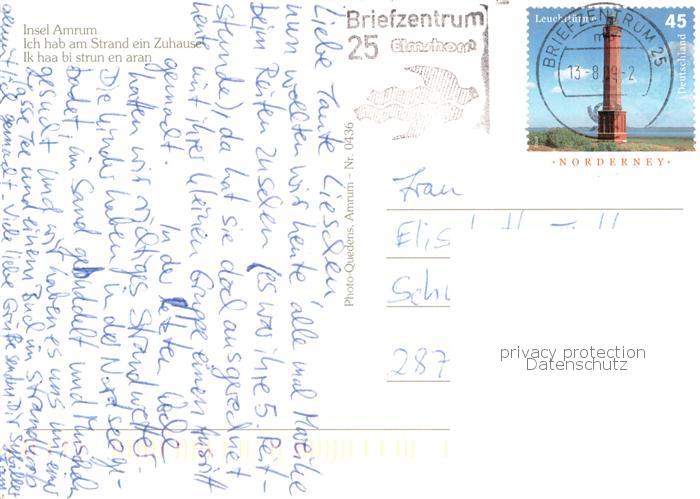 Insel Amrum
Ich hab am Strand ein Zuhause
Ik haa bi strun en aran
Briefzentrum
25 Elmshorn
Leuchttürme
45
Deutschland
BRIEFZENTRUM 25
mb
13-8
-2
·NORDERNEY·
Photo-Quedens, Amrum – Nr. 0436
Liebe Tante Lieschen
nun wollten wir heute alle mal Mareike
beim Reiten zusehen (es war ihre 5. Reit-
stunde), da hat sie doch ausgerechnet
heut mit ihrer kleinen Gruppe einen Ausritt
gemacht. In der letzten Woche
hatten wir richtiges Strandwetter.
Die Kinder haben in der Nordsee ge-
badet, im Sand gebuddelt und Muscheln
gesucht und wir haben es uns mit einer
Tasse Tee und einem Buch im Strandkorb
gemütlich gemacht. Viele liebe Grüße senden Dir
Frau
Elis
Sch
287
privacy protection
Datenschutz